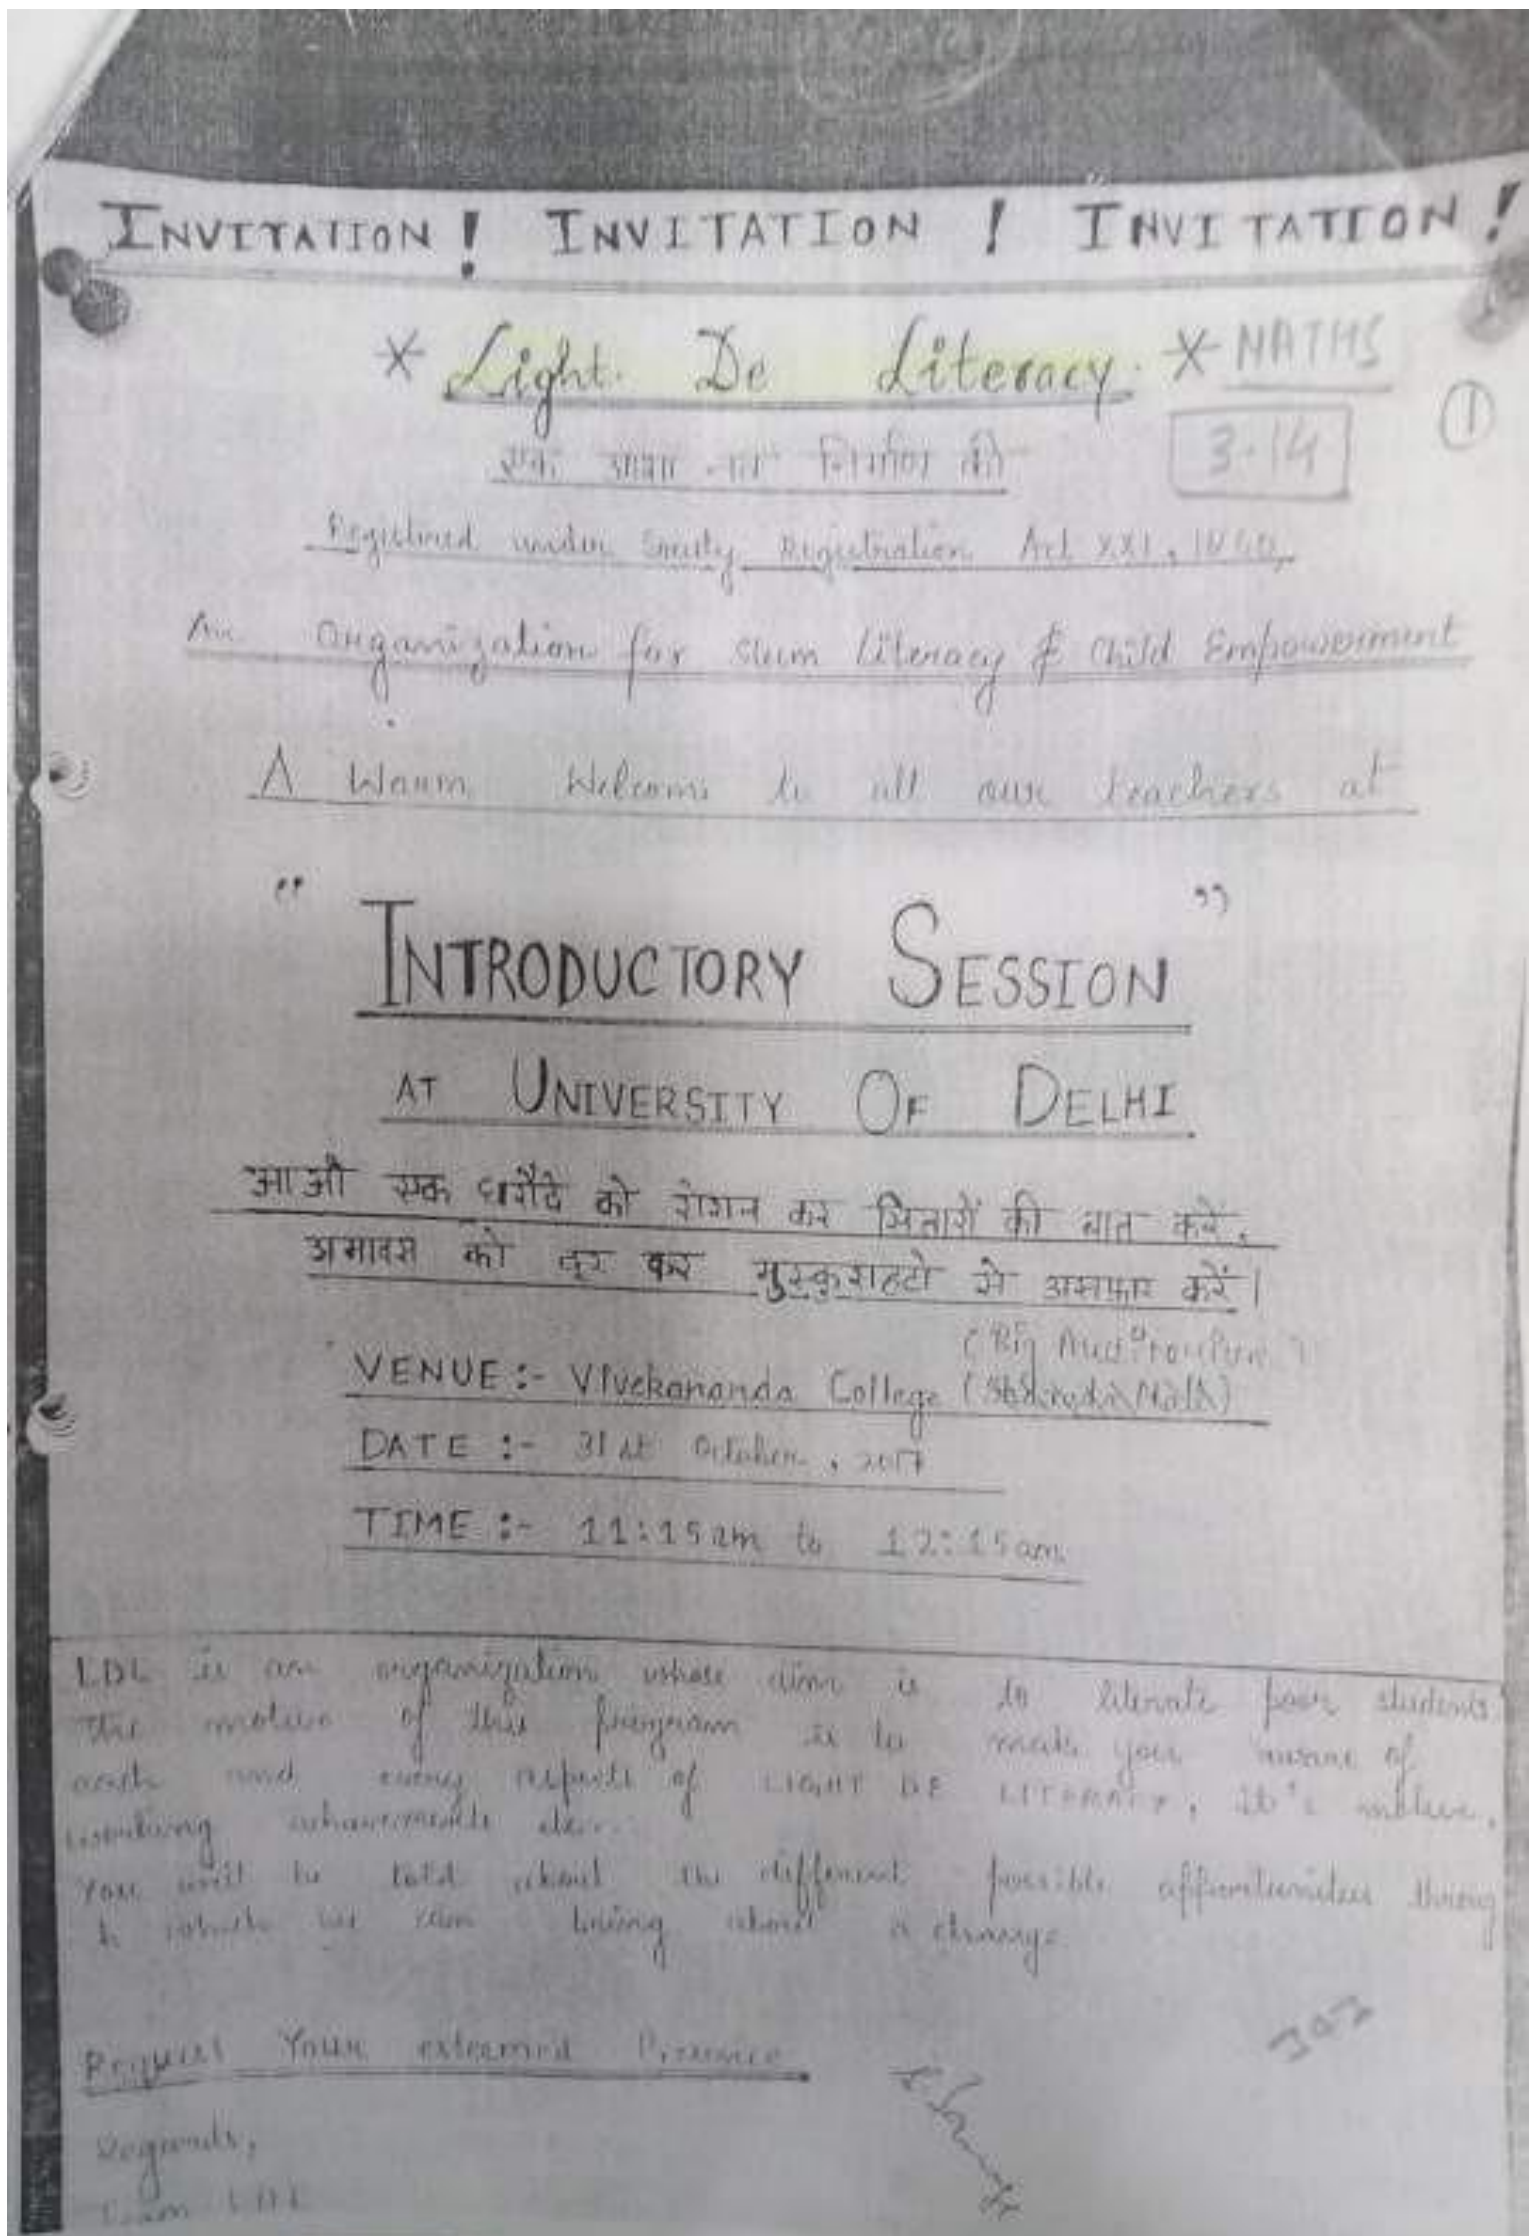 INVITATION! INVITATION! INVITATION!
* Light De Literacy * MATHS
1
3.14
एक आशा नव निर्माण की
Registered under Society Registration Act XXI, 1860,
An Organization for Slum Literacy & Child Empowerment
A Warm Welcome to all our teachers at
" INTRODUCTORY SESSION "
AT UNIVERSITY OF DELHI
आओ एक घरौंदे को रोशन कर सितारों की बात करें,
अमावस को दूर कर मुस्कुराहटो से करें।
(Big Auditorium)
VENUE :- Vivekananda College
DATE :- 31st October, 2017
TIME :- 11:15am to 12:15am
LDL is an organization whose aim is to literate poor students.
The motive of this program is to make you aware of
each and every aspects of LIGHT DE LITERACY, it's motive,
working achievements etc...
You will be told about the different possible opportunities throug
h which we can bring about a change.
Request Your esteemed Presence
Regards,
Team LDL